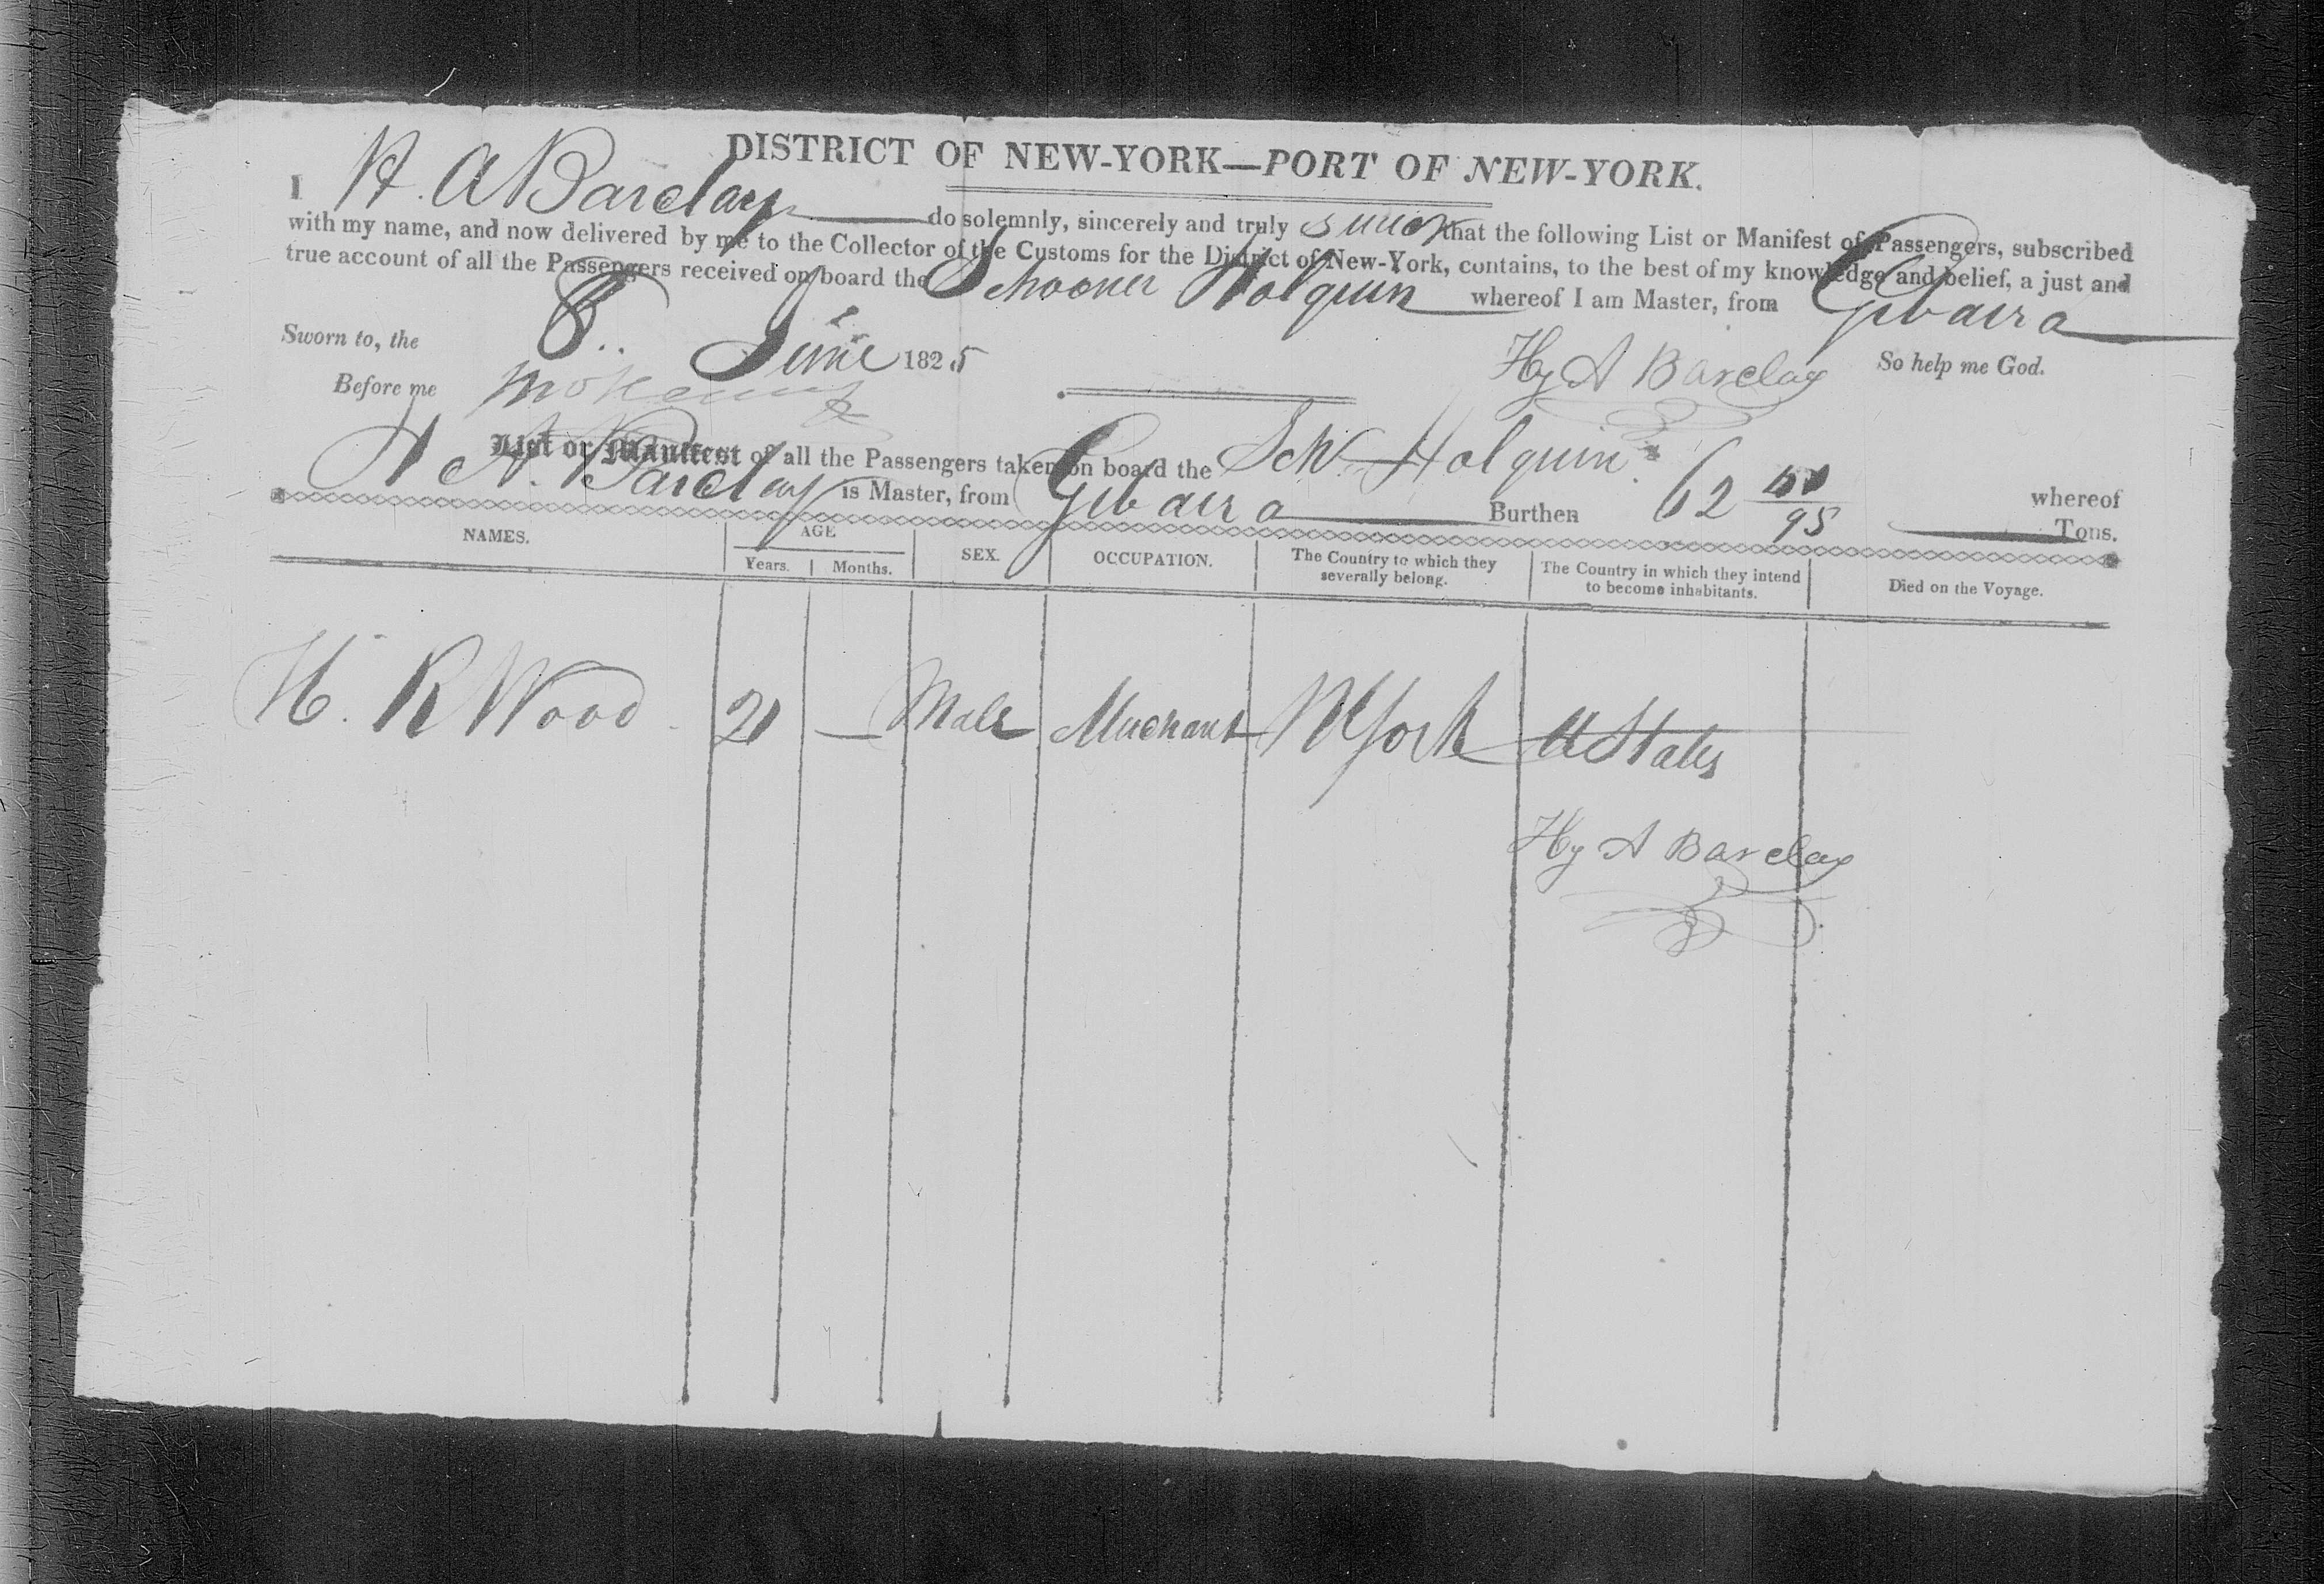 DISTRICT OF NEW-YORK—PORT OF NEW-YORK.
I H. A Barclay do solemnly, sincerely and truly swear that the following List or Manifest of Passengers, subscribed
with my name, and now delivered by me to the Collector of the Customs for the District of New-York, contains, to the best of my knowledge and belief, a just and
true account of all the Passengers received on board the Schooner Holquin whereof I am Master, from Gibara
So help me God.
Sworn to, the 8 June 1825 Hy A Barclay
Before me
List or Manifest of all the Passengers taken on board the Sch Holquin whereof
H A. Barclay is Master, from Gibara Burthen 62 /95 Tons.
NAMES. AGE SEX. OCCUPATION. The Country to which they severally belong. The Country in which they intend to become inhabitants. Died on the Voyage.
Years. Months.
H. R Wood 21 — Male Merchant N York U States
Hy A Barclay